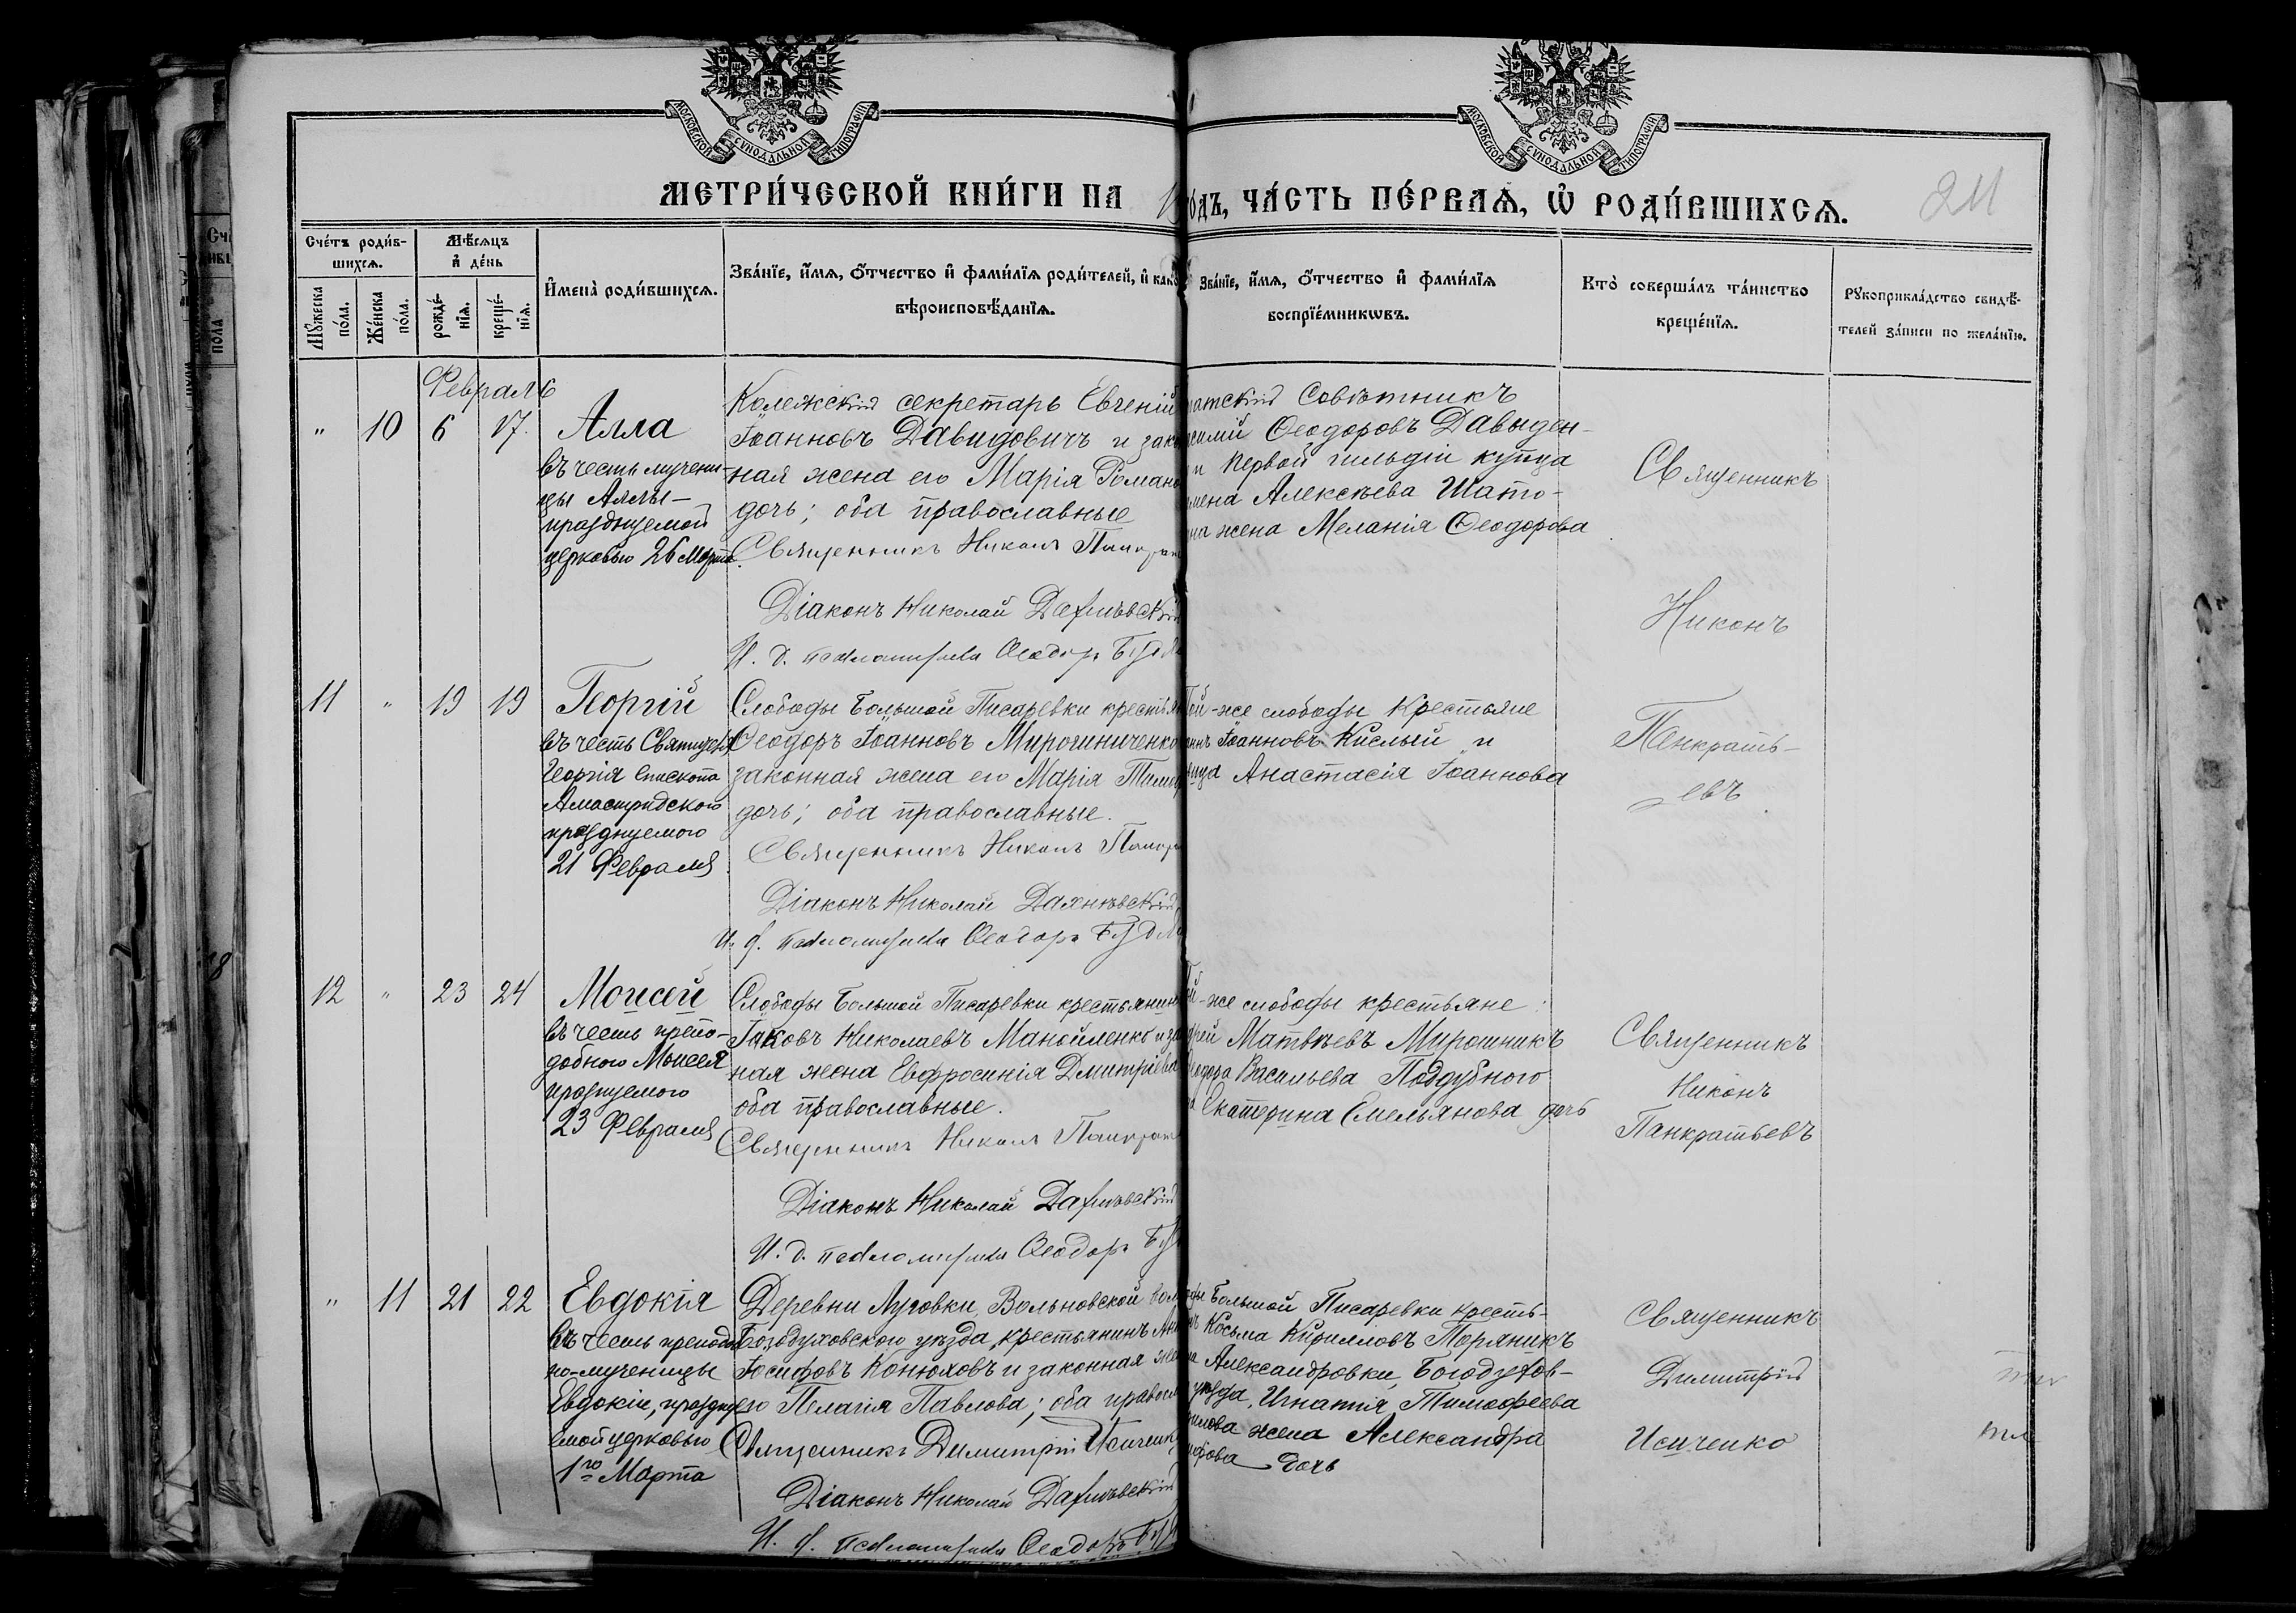 МОСКОВСКОЙ СѴНОДАЛЬНОЙ ТИПОГРАФІИ
МОСКОВСКОЙ СѴНОДАЛЬНОЙ ТИПОГРАФІИ
МЕТРИ́ЧЕСКОЙ КНИ́ГИ НА
ЧА́СТЬ ПЕ́РВАѦ, Ѡ҆ РОДИ́ВШИХСѦ.
211
Сче́тъ роди́в-
шихсѧ.
Мѣ́сѧцъ
и҆ де́нь
Мꙋ́жеска
по́ла.
Же́нска
по́ла.
рожде́-
нїѧ.
креще́-
нїѧ.
И҆мена̀ роди́вшихсѧ.
Зва́нїе, и҆́мѧ, ѻ҆́тчество и҆ фами́лїѧ роди́телей, и҆
вѣроисповѣ́данїѧ.
Зва́нїе, и҆́мѧ, ѻ҆́тчество и҆ фами́лїѧ
воспрїе́мникѡвъ.
Кто̀ соверша́лъ та́инство
креще́нїѧ.
Рꙋкоприкла́дство свидѣ́-
телей за́писи по жела́нїю.
Февраль
" 10 6 17. Алла
въ честь мучени-
цы Аллы-
празднуемой
церковью 26 Марта.
Колежскій секретарь Евгеній
Іоанновъ Давидовичъ и зако
ная жена его Марія Романо
дочь; оба православные
Священникъ Никонъ Панкрат
Діаконъ Николай Дахнѣвскій
И. д. псаломщика Ѳеодоръ
Совѣтникъ
Ѳеодоровъ Давыден-
и первой гильдіи купца
Алексѣева Шато-
жена Меланія Ѳеодорова
Священникъ
Никонъ
Панкрать-
евъ
11 " 19 19 Георгій
въ честь Святителя
Георгія Епископа
Амастридского
празднуемого
21 Февраля
Слободы Большой Писаревки крестьян
Ѳеодоръ Іоанновъ Мирошниченко
законная жена его Марія
дочь; оба православные.
Священникъ Никонъ Панкр
Діаконъ Николай Дахнѣвскій
И. д. псаломщика Ѳеодоръ
Той-же слободы крестьяне
Іоанновъ Кислый и
Анастасія Іоаннова
12 " 23 24 Моисей
въ честь препо-
добного Моисея
празнуемого
23 Февраля
Слободы Большой Писаревки крестьянинъ
Іаковъ Николаевъ Манойленко и за
ная жена Евфросинія Дмитріева
оба православные.
Священникъ Никонъ Панкрат
Діаконъ Николай Дахнѣвскій
И. д. псаломщика Ѳеодоръ
-же слободы крестьяне
Матвѣевъ Мирошникъ
Васильева Поддубного
Екатерина Емельянова дочь
Священникъ
Никонъ
Панкратьевъ
" 11 21 22 Евдокія
въ честь преподоб
но-мученицы
Евдокіи, праздну
емой церковью
1го Марта
Деревни Луговки, Вольновской
Богодуховского уѣзда, крестьянинъ
Іосифовъ Конюховъ и законная
его Пелагія Павлова; оба правосл
Священникъ Димитрій Исиченко
Діаконъ Николай Дахнѣвскій
И. д. псаломщика Ѳеодоръ
Большой Писаревки кресть-
Косьма Кирилловъ Торяникъ
Александровки, Богодухов-
уѣзда, Игнатія Тимоѳеева
жена Александра
дочь
Священникъ
Димитрій
Исиченко